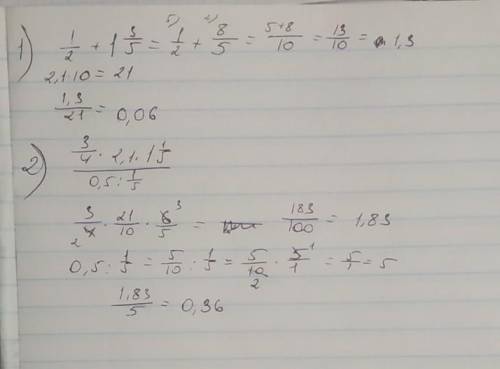 1) 1/2 + 1 3/5 = 5) 1/2 + 2) 8/5 = 5+8/10 = 13/10 = 1,3
2,1·10 = 21
1,3/21 = 0,06
2) 3/4 · 2,1 · 1 1/5 / 0,5 : 1/5
3/4 2 · 21/10 · 6 3/5 = 183/100 = 1,83
0,5 : 1/5 = 5/10 : 1/5 = 5/10 2 · 5 1/1 = 5/1 = 5
1,83/5 = 0,36